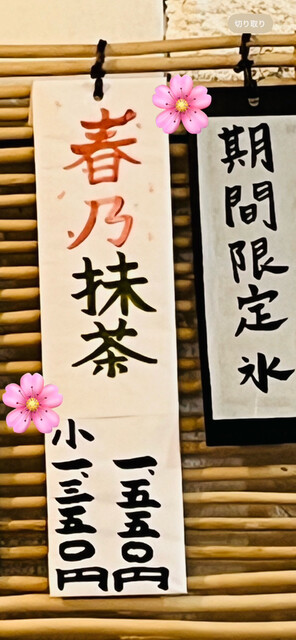 切り取り
期間限定氷
春乃抹茶
一、五五〇円
小一、三五〇円